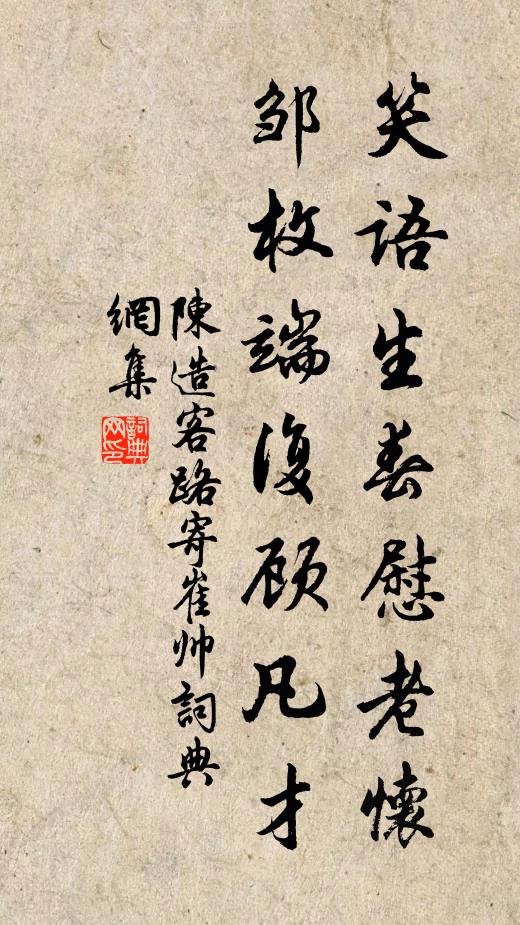 笑语生春慰老懷
邹枚端復顾凡才
陳造客路寄崔帅詞典
網集
詞典網印